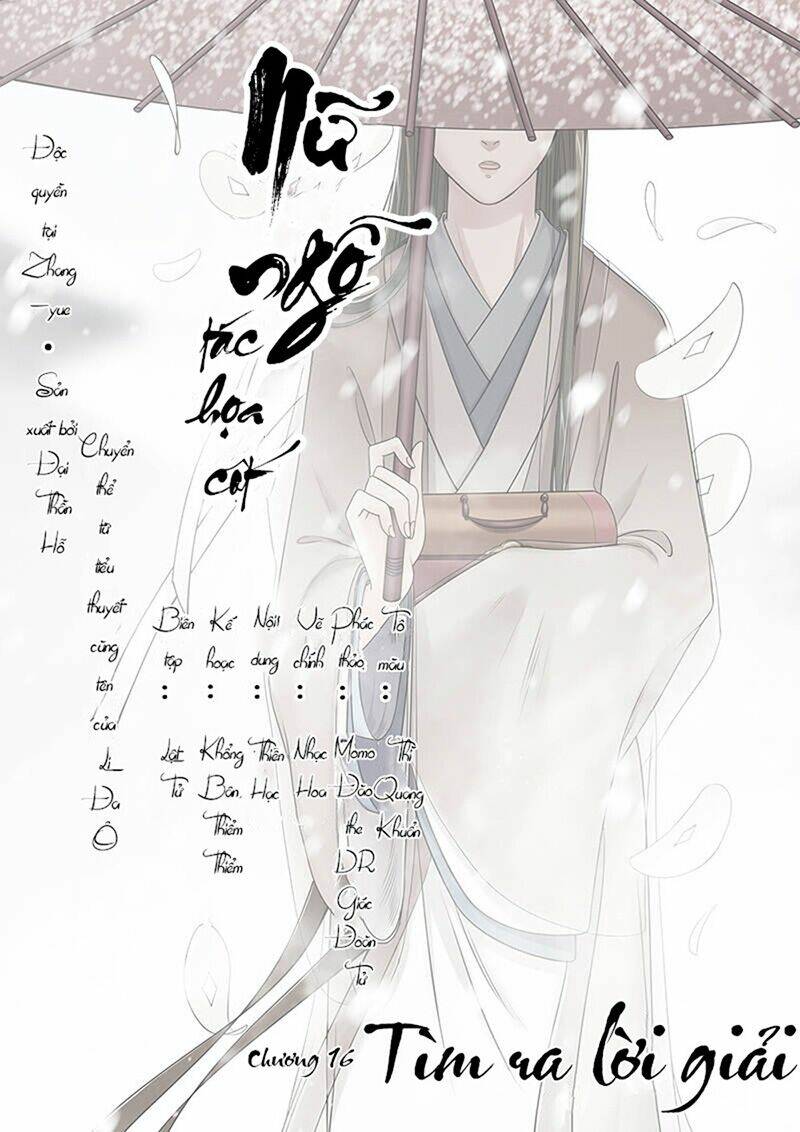 Nữ
ngỗ
tác
họa
cốt
Độc
quyền
tại
Zhang
-yue
•
Sản
xuất bởi
Đại
Thần
Hỗ
Chuyển
thể
từ
tiểu
thuyết
cùng
tên
của
Li
Đa
Ô
Biên
tập
:
Lạt
Tử
Kế
hoạc
:
Khổng
Bân.
Thiểm
Thiểm
Nội
dung
:
Thiền
Học
Vẽ
chính
:
Nhạc
Hoa
Phác
thảo
:
Momo
Đào
the
DR
Giác
Đoàn
Tử
Tô
màu
:
Thì
Quang
Khuẩn
Chương 16
Tìm ra lời giải